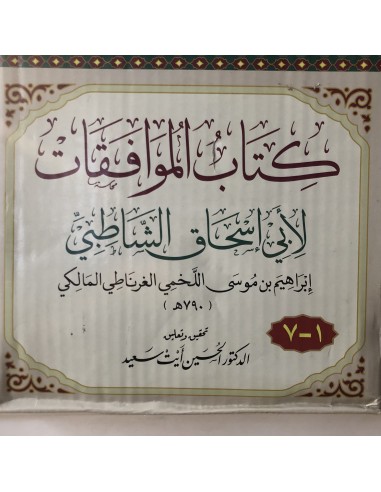 كِتَابُ المُوَافَقَات
لِأَبِي إِسْحَاق الشَّاطِبِيِّ
إِبْرَاهِيم بن مُوسَى اللَّخمِي الغرنَاطِي المَالِكي
( ٧٩٠هـ )
١-٧
تحقيق وتعليق
الدكتور الحسين أيت سعيد